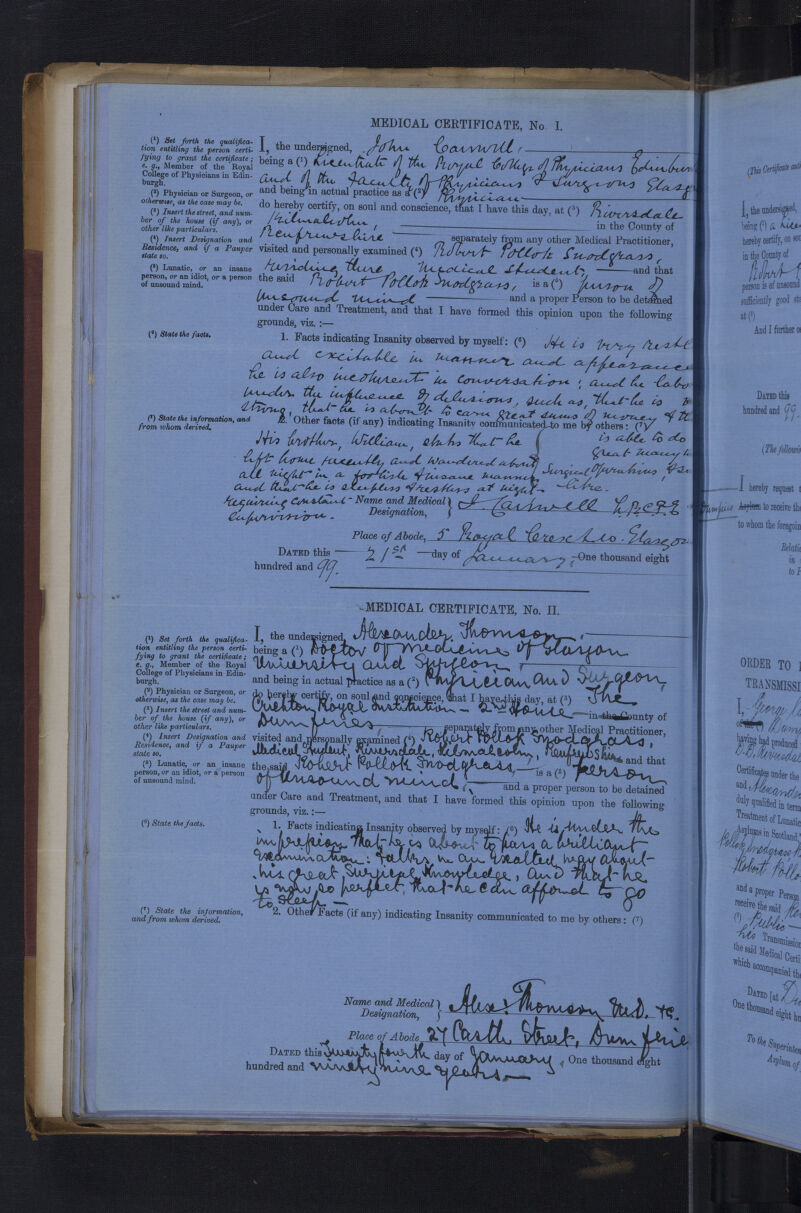 MEDICAL CERTIFICATE, No. I.
(¹) Set forth the qualifica-
tion entitling the person certi-
fying to grant the certificate;
e. g., Member of the Royal
College of Physicians in Edin-
burgh.
(²) Physician or Surgeon, or
otherwise, as the case may be.
(³) Insert the street, and num-
ber of the house (if any), or
other like particulars.
(⁴) Insert Designation and
Residence, and if a Pauper
state so.
(⁵) Lunatic, or an insane
person, or an idiot, or a person
of unsound mind.
(⁶) State the facts.
(⁷) State the information, and
from whom derived.
I, the undersigned, John Carswell,
being a (¹) Licentiate of the Royal College of Physicians Edinbur
and of the Faculty of Physicians & Surgeons Glasg
and being in actual practice as a (²) Physician
do hereby certify, on soul and conscience, that I have this day, at (³) Riversdale
Kilmalcolm, in the County of
Renfrewshire separately from any other Medical Practitioner,
visited and personally examined (⁴) Robert Pollok Snodgrass,
residing there, Medical Student, and that
the said Robert Pollok Snodgrass, is a (⁵) person of
unsound mind and a proper Person to be detained
under Care and Treatment, and that I have formed this opinion upon the following
grounds, viz. :—
1. Facts indicating Insanity observed by myself: (⁶) He is very restl
and excitable in manner and appearance
he is also incoherent in conversation; and he labo
under the influence of delusions, such as, that he is
strong, that he is about to earn great sums of money & th
2. Other facts (if any) indicating Insanity communicated to me by others: (⁷)
is able to do
great many
Surgical Operations, &
His brother, William, states that he
left home recently and wandered about
all night in a foolish & insane manner
and that he is sleepless & restless at night
requiring constant
supervision.
Name and Medical
Designation, J. Carswell L.R.C.P.E
Place of Abode, 5 Royal Crescent W. Glasgow
DATED this 21st day of January, One thousand eight
hundred and 99.
MEDICAL CERTIFICATE, No. II.
(¹) Set forth the qualifica-
tion entitling the person certi-
fying to grant the certificate;
e. g., Member of the Royal
College of Physicians in Edin-
burgh.
(²) Physician or Surgeon, or
otherwise, as the case may be.
(³) Insert the street and num-
ber of the house (if any), or
other like particulars.
(⁴) Insert Designation and
Residence, and if a Pauper
state so.
(⁵) Lunatic, or an insane
person, or an idiot, or a person
of unsound mind.
(⁶) State the facts.
(⁷) State the information,
and from whom derived.
I, the undersigned, Alexander Thomson,
being a (¹) Doctor of medicine of Glasgow
University and Surgeon,
and being in actual practice as a (²) Physician and Surgeon,
do hereby certify, on soul and conscience, that I have this day, at (³) The
Crichton Royal Institution – 2nd House in the County of
Dumfries, separately from any other Medical Practitioner,
visited and personally examined (⁴) Robert Pollok Snodgrass,
Medical Student, Riversdale, Kilmalcolm, Renfrewshire and that
the said Robert Pollok Snodgrass, is a (⁵) person
of unsound mind, and a proper person to be detained
under Care and Treatment, and that I have formed this opinion upon the following
grounds, viz. :—
1. Facts indicating Insanity observed by myself: (⁶) He is under the
impression that he is about to pass a brilliant
examination: talks in an exalted way about
his great Surgical knowledge, and that he
is now so perfect, that he can afford to go
to sleep –
2. Other Facts (if any) indicating Insanity communicated to me by others: (⁷)
Name and Medical
Designation, Alexr Thomson M.D. &c.
Place of Abode, 27 Castle Street, Dumfries
DATED this Twenty fourth day of January, One thousand eight
hundred and ninety nine years.
(This Certificate
I, the undersigned,
being (¹) a
hereby certify, on
in the County of
Robert
person is of unsound
sufficiently good
at (²)
And I further
DATED this
hundred and 99
(The followin
I hereby request
Dumfries Asylum to receive the
to whom the foregoin
Relati
in
to
ORDER TO
TRANSMISSI
I, George
of
having had produced
Riversdale
Certificates under the
and Alexander
duly qualified in term
Treatment of Lunatic
Asylums in Scotland
Pollok Snodgrass
Robert Pollo
and a proper Person
receive the said
(¹) Public
his Transmission
the said Medical Certi
which accompanied th
DATED [at
One thousand eight hu
To the Superinten
Asylum of